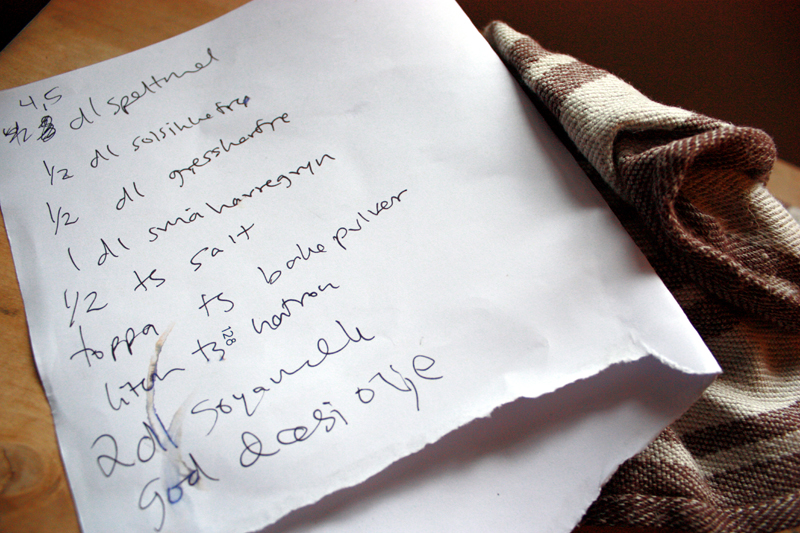 4,5
dl speltmel
1/2 dl solsikkefrø
1/2 dl gresskarfrø
1 dl små havregryn
1/2 ts salt
toppa ts bakepulver
liten ts natron
2 dl soyamelk
god dæsj olje